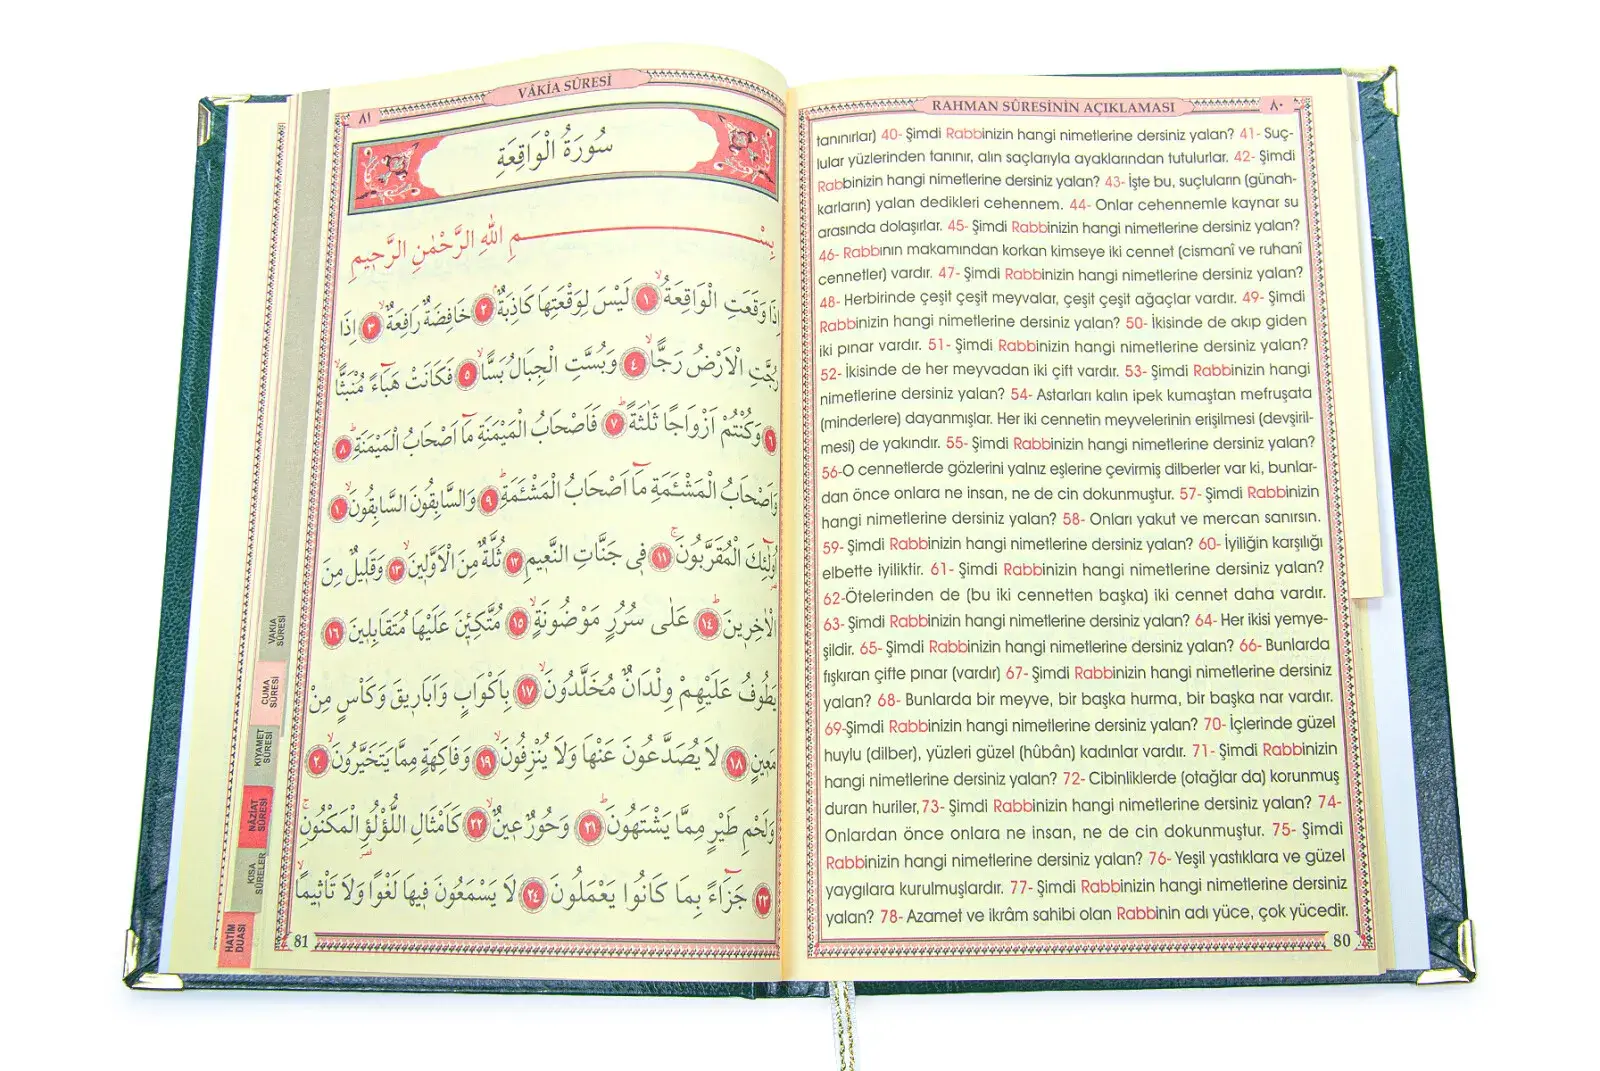 RAHMAN SÛRESİNİN AÇIKLAMASI
٨٠
tanınırlar) 40- Şimdi Rabbinizin hangi nimetlerine dersiniz yalan? 41- Suç-
lular yüzlerinden tanınır, alın saçlarıyla ayaklarından tutulurlar. 42- Şimdi
Rabbinizin hangi nimetlerine dersiniz yalan? 43- İşte bu, suçluların (günah-
karların) yalan dedikleri cehennem. 44- Onlar cehennemle kaynar su
arasında dolaşırlar. 45- Şimdi Rabbinizin hangi nimetlerine dersiniz yalan?
46- Rabbının makamından korkan kimseye iki cennet (cismanî ve ruhanî
cennetler) vardır. 47- Şimdi Rabbinizin hangi nimetlerine dersiniz yalan?
48- Herbirinde çeşit çeşit meyvalar, çeşit çeşit ağaçlar vardır. 49- Şimdi
Rabbinizin hangi nimetlerine dersiniz yalan? 50- İkisinde de akıp giden
iki pınar vardır. 51- Şimdi Rabbinizin hangi nimetlerine dersiniz yalan?
52- İkisinde de her meyvadan iki çift vardır. 53- Şimdi Rabbinizin hangi
nimetlerine dersiniz yalan? 54- Astarları kalın ipek kumaştan mefruşata
(minderlere) dayanmışlar. Her iki cennetin meyvelerinin erişilmesi (devşiril-
mesi) de yakındır. 55- Şimdi Rabbinizin hangi nimetlerine dersiniz yalan?
56-O cennetlerde gözlerini yalnız eşlerine çevirmiş dilberler var ki, bunlar-
dan önce onlara ne insan, ne de cin dokunmuştur. 57- Şimdi Rabbinizin
hangi nimetlerine dersiniz yalan? 58- Onları yakut ve mercan sanırsın.
59- Şimdi Rabbinizin hangi nimetlerine dersiniz yalan? 60- İyiliğin karşılığı
elbette iyiliktir. 61- Şimdi Rabbinizin hangi nimetlerine dersiniz yalan?
62-Ötelerinden de (bu iki cennetten başka) iki cennet daha vardır.
63- Şimdi Rabbinizin hangi nimetlerine dersiniz yalan? 64- Her ikisi yemye-
şildir. 65- Şimdi Rabbinizin hangi nimetlerine dersiniz yalan? 66- Bunlarda
fışkıran çifte pınar (vardır) 67- Şimdi Rabbinizin hangi nimetlerine dersiniz
yalan? 68- Bunlarda bir meyve, bir başka hurma, bir başka nar vardır.
69-Şimdi Rabbinizin hangi nimetlerine dersiniz yalan? 70- İçlerinde güzel
huylu (dilber), yüzleri güzel (hûbân) kadınlar vardır. 71- Şimdi Rabbinizin
hangi nimetlerine dersiniz yalan? 72- Cibinliklerde (otağlar da) korunmuş
duran huriler,73- Şimdi Rabbinizin hangi nimetlerine dersiniz yalan? 74-
Onlardan önce onlara ne insan, ne de cin dokunmuştur. 75- Şimdi
Rabbinizin hangi nimetlerine dersiniz yalan? 76- Yeşil yastıklara ve güzel
yaygılara kurulmuşlardır. 77- Şimdi Rabbinizin hangi nimetlerine dersiniz
yalan? 78- Azamet ve ikrâm sahibi olan Rabbinin adı yüce, çok yücedir.
80
VÂKİA SÛRESİ
٨١
سُورَةُ الْوَاقِعَةِ
بِسْمِ اللّٰهِ الرَّحْمٰنِ الرَّحِيمِ
اِذَا وَقَعَتِ الْوَاقِعَةُ ١ لَيْسَ لِوَقْعَتِهَا كَاذِبَةٌ ٢ خَافِضَةٌ رَافِعَةٌ ٣ اِذَا
رُجَّتِ الْاَرْضُ رَجًّا ٤ وَبُسَّتِ الْجِبَالُ بَسًّا ٥ فَكَانَتْ هَبَٓاءً مُنْبَثًّا
٦ وَكُنْتُمْ اَزْوَاجًا ثَلٰثَةً ٧ فَاَصْحَابُ الْمَيْمَنَةِ مَٓا اَصْحَابُ الْمَيْمَنَةِ ٨
وَاَصْحَابُ الْمَشْـَٔمَةِ مَٓا اَصْحَابُ الْمَشْـَٔمَةِ ٩ وَالسَّابِقُونَ السَّابِقُونَ ١٠
اُولٰٓئِكَ الْمُقَرَّبُونَ ١١ فِي جَنَّاتِ النَّعِيمِ ١٢ ثُلَّةٌ مِنَ الْاَوَّلِينَ ١٣ وَقَلِيلٌ مِنَ
الْاٰخِرِينَ ١٤ عَلٰى سُرُرٍ مَوْضُونَةٍ ١٥ مُتَّكِـِٔينَ عَلَيْهَا مُتَقَابِلِينَ ١٦
يَطُوفُ عَلَيْهِمْ وِلْدَانٌ مُخَلَّدُونَ ١٧ بِاَكْوَابٍ وَاَبَارِيقَ وَكَاْسٍ مِنْ
مَعِينٍ ١٨ لَا يُصَدَّعُونَ عَنْهَا وَلَا يُنْزِفُونَ ١٩ وَفَاكِهَةٍ مِمَّا يَتَخَيَّرُونَ ٢٠
وَلَحْمِ طَيْرٍ مِمَّا يَشْتَهُونَ ٢١ وَحُورٌ عِينٌ ٢٢ كَاَمْثَالِ اللُّؤْلُؤِ الْمَكْنُونِ
٢٣ جَزَٓاءً بِمَا كَانُوا يَعْمَلُونَ ٢٤ لَا يَسْمَعُونَ فِيهَا لَغْوًا وَلَا تَاْثِيمًا
81
VAKIA
SÛRESİ
CUMA
SÛRESİ
KIYAMET
SÛRESİ
NÂZİAT
SÛRESİ
KISA
SÛRELER
HATİM
DUASI